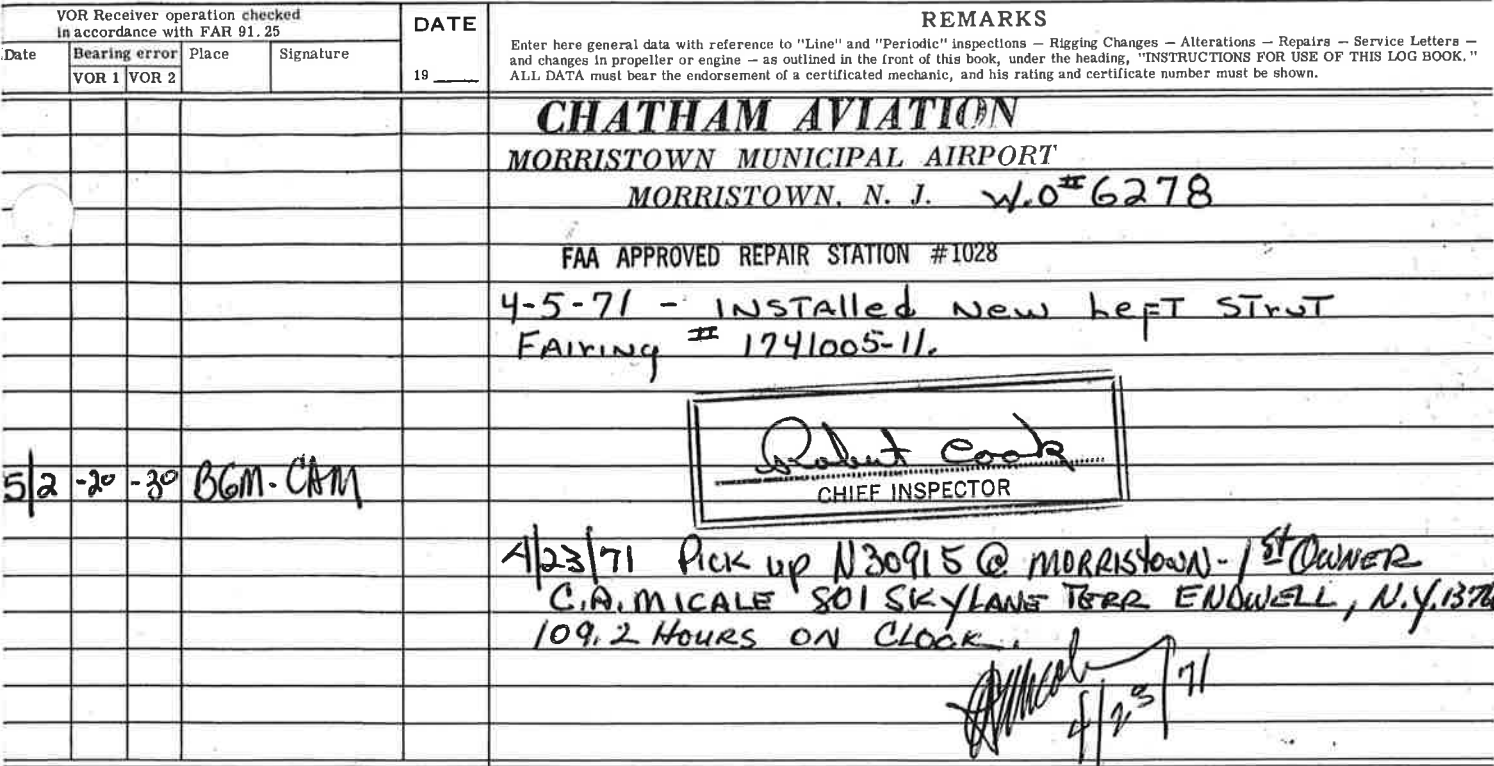 VOR Receiver operation checked
in accordance with FAR 91.25
Date
Bearing error
Place
Signature
VOR 1
VOR 2
DATE
19 ____
REMARKS
Enter here general data with reference to "Line" and "Periodic" inspections — Rigging Changes — Alterations — Repairs — Service Letters —
and changes in propeller or engine — as outlined in the front of this book, under the heading, "INSTRUCTIONS FOR USE OF THIS LOG BOOK."
ALL DATA must bear the endorsement of a certificated mechanic, and his rating and certificate number must be shown.
CHATHAM AVIATION
MORRISTOWN MUNICIPAL AIRPORT
MORRISTOWN, N. J. W.O# 6278
FAA APPROVED REPAIR STATION #1028
4-5-71 - INSTAlled New Left STruT
FAIrINg # 1741005-11.
Robert Cook
CHIEF INSPECTOR
5/2 -2° -3° BGM - CAM
4/23/71 Pick up N30915 @ MORRIStowN - 1st OWNER
C.A. MICALE 801 SKYLANE TERR ENDWELL, N.Y. 1376
109.2 HOURS ON CLOCK.
4/23/71